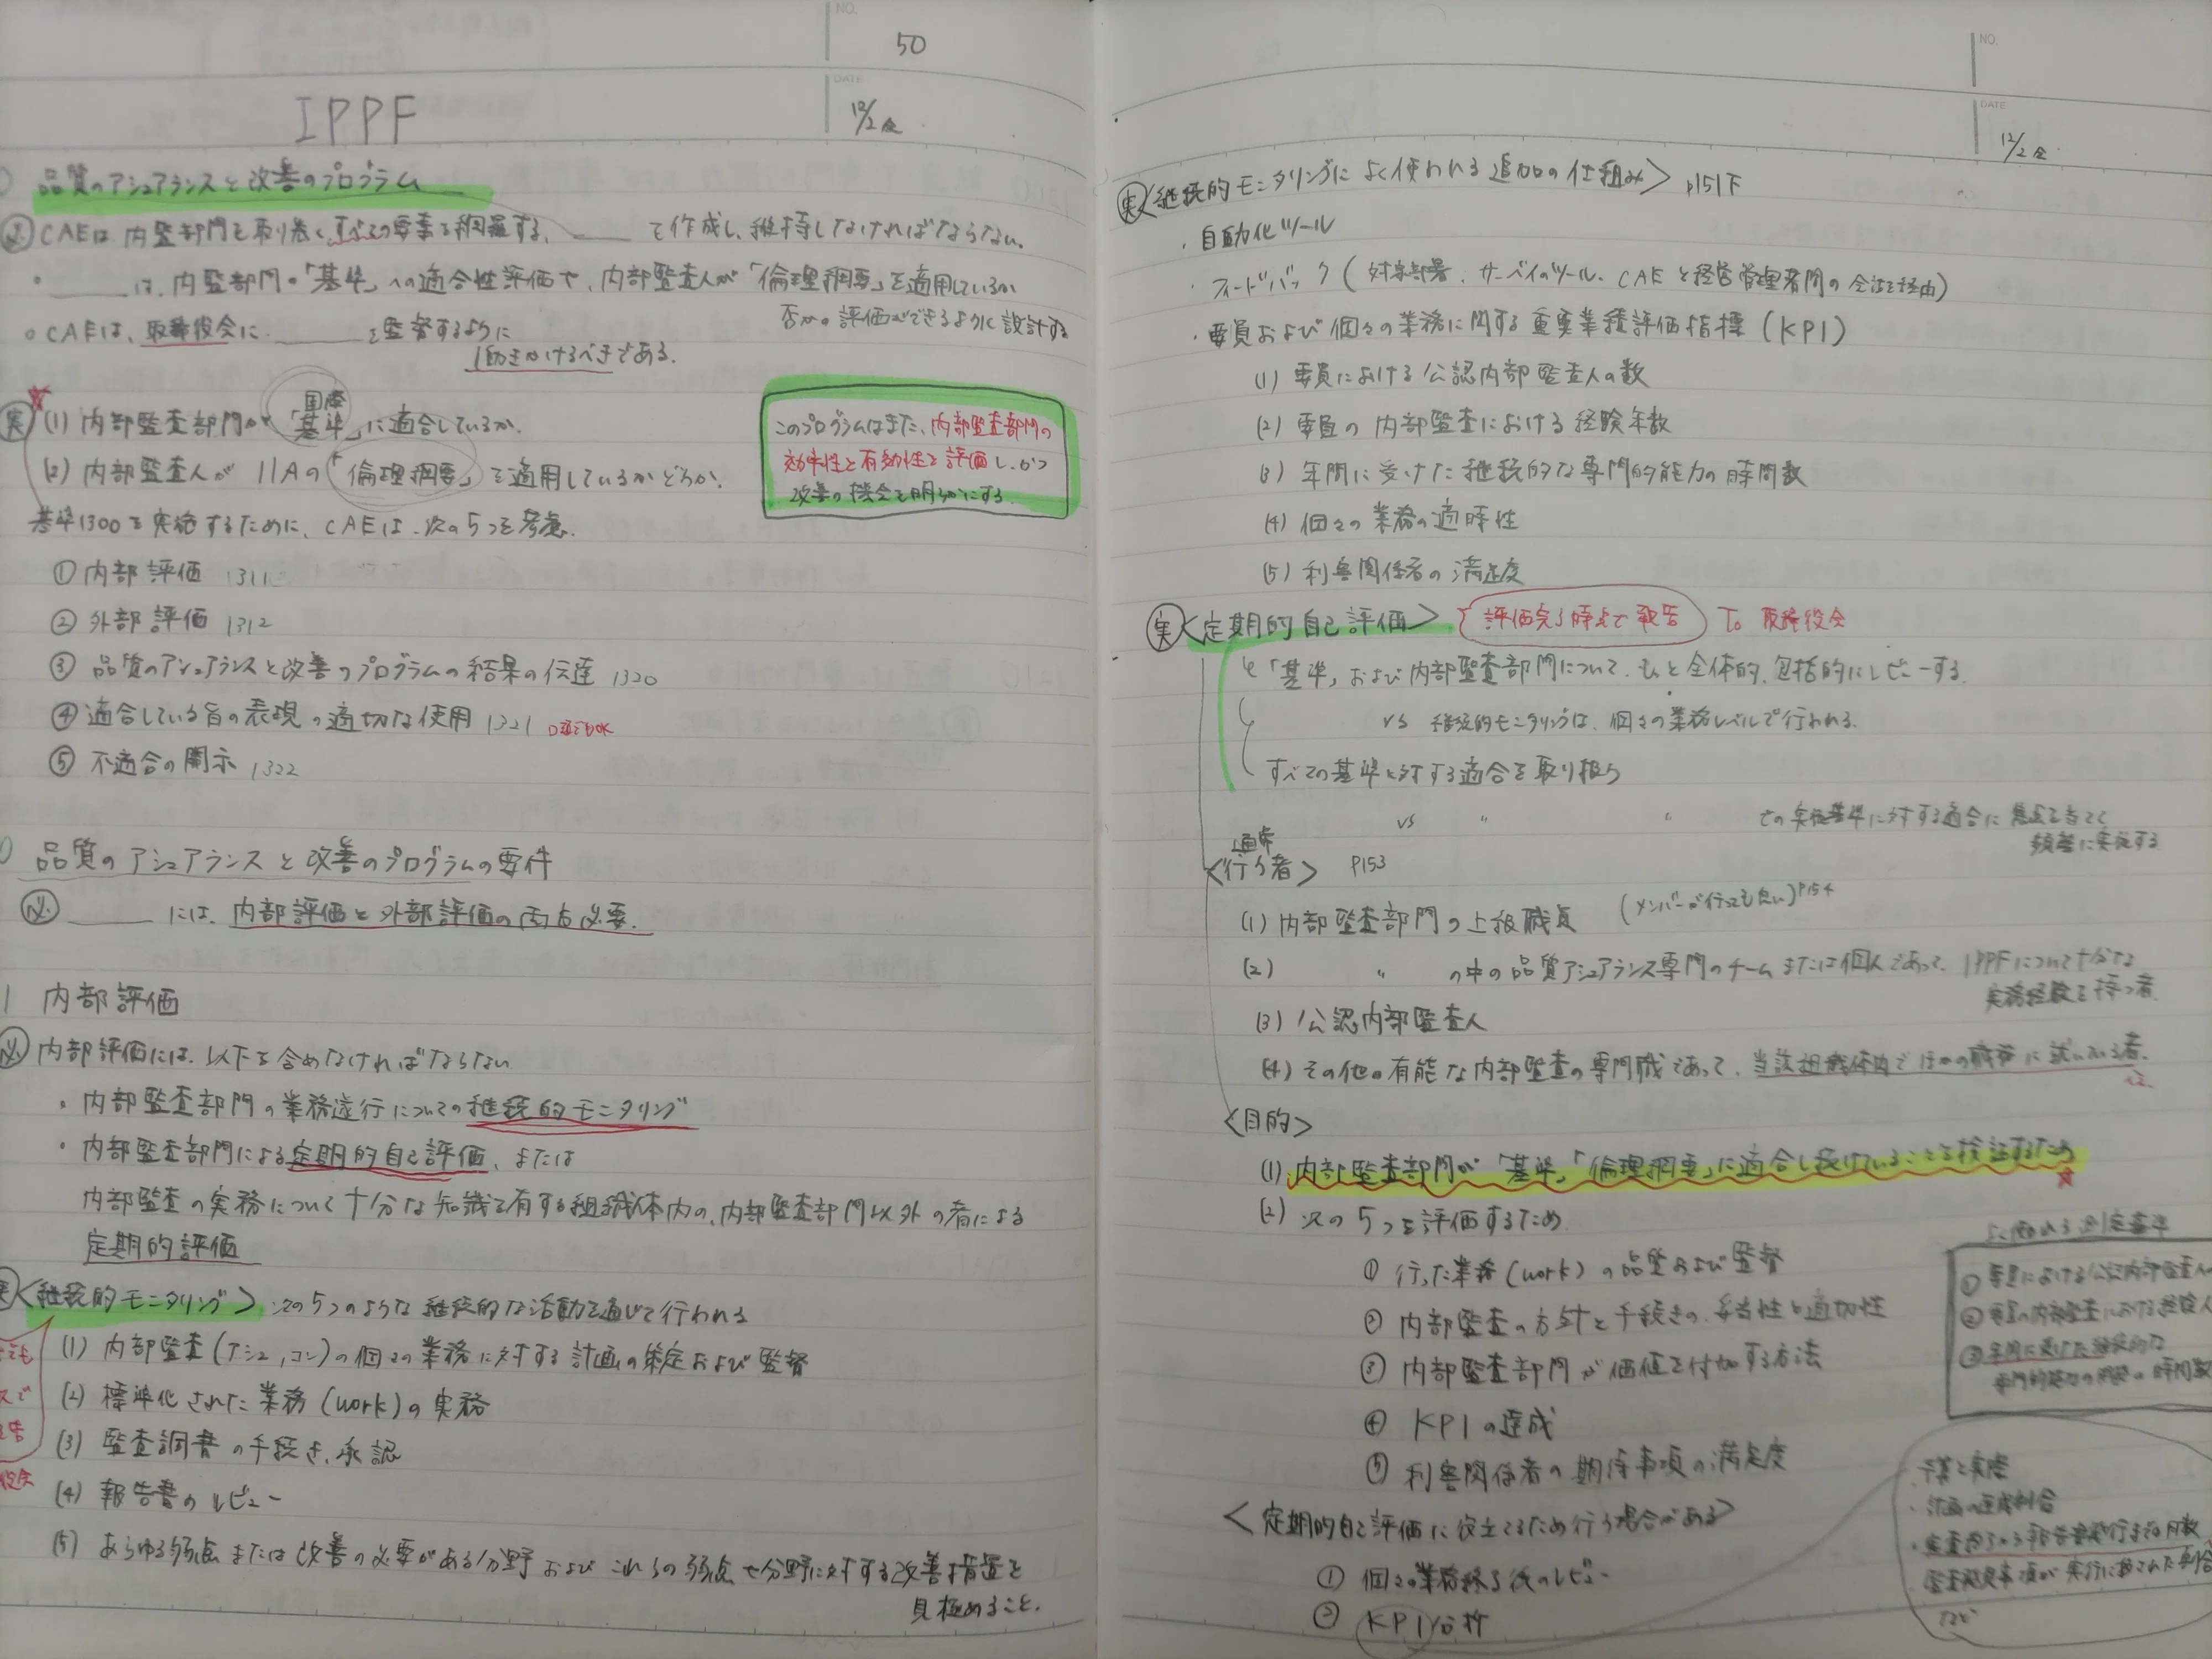 NO.
50
DATE
12/2 金
IPPF
品質のアシュアランスと改善のプログラム
CAEは、内監部門を取り巻くすべての要素を網羅する、____を作成し、維持しなければならない。
・____は、内監部門の「基準」への適合性評価や、内部監査人が「倫理綱要」を適用しているか
否かの評価ができるように設計する
○CAEは、取締役会に____を監督するように
働きかけるべきである。
実 (1) 内部監査部門が国際「基準」に適合しているか。
(2) 内部監査人がIIAの「倫理綱要」を適用しているかどうか。
このプログラムはまた、内部監査部門の
効率性と有効性を評価し、かつ
改善の機会を明らかにする。
基準1300を実施するために、CAEは、次の5つを考慮。
①内部評価 1311
②外部評価 1312
③品質のアシュアランスと改善のプログラムの結果の伝達 1320
④適合している旨の表現の適切な使用 1321 口頭でもOK
⑤不適合の開示 1322
品質のアシュアランスと改善のプログラムの要件
____には、内部評価と外部評価の両方必要。
1 内部評価
内部評価には、以下を含めなければならない
・内部監査部門の業務遂行についての継続的モニタリング
・内部監査部門による定期的自己評価、または
内部監査の実務について十分な知識を有する組織体内の、内部監査部門以外の者による
定期的評価
実<継続的モニタリング> 次の5つのような継続的な活動を通じて行われる
(1) 内部監査(アシュ,コン)の個々の業務に対する計画の策定および監督
(2) 標準化された業務(work)の実務
(3) 監査調書の手続き、承認
(4) 報告書のレビュー
(5) あらゆる弱点または改善の必要がある分野およびこれらの弱点や分野に対する改善措置を
見極めること。
NO.
DATE
12/2 金
実<継続的モニタリングによく使われる追加の仕組み> p151下
・自動化ツール
・フィードバック(対象部署、サーベイのツール、CAEと経営管理者間の会話を経由)
・要員および個々の業務に関する重要業績評価指標(KPI)
(1) 要員における公認内部監査人の数
(2) 要員の内部監査における経験年数
(3) 年間に受けた継続的な専門的能力の時間数
(4) 個々の業務の適時性
(5) 利害関係者の満足度
実<定期的自己評価> 評価完了時点で報告 To 取締役会
「基準」および内部監査部門について、もっと全体的、包括的にレビューする。
vs 継続的モニタリングは、個々の業務レベルで行われる。
すべての基準に対する適合を取り扱う
vs 〃 〃 での実施基準に対する適合に焦点を当てて
頻繁に実施する
通常
<行う者> P153
(1) 内部監査部門の上級職員 (メンバーが行っても良い)P154
(2) 〃 の中の品質アシュアランス専門のチームまたは個人であって、IPPFについて十分な
実務経験を持つ者
(3) 公認内部監査人
(4) その他の有能な内部監査の専門職であって、当該組織体内でほかの職務に就いている者。
<目的>
(1) 内部監査部門が「基準」「倫理綱要」に適合し続けていることを検証するため
(2) 次の5つを評価するため
① 行った業務(work)の品質および監督
② 内部監査の方針と手続きの、妥当性と適切性
③ 内部監査部門が価値を付加する方法
④ KPIの達成
⑤ 利害関係者の期待事項の満足度
よく使われる測定基準
①要員における公認内部監査人
②要員の内部監査における経験
③年間に受けた継続的な
専門的能力の開発の時間数
<定期的自己評価に役立てるため行う場合がある>
① 個々の業務終了後のレビュー
② KPI分析
・予算と実際
・計画の達成割合
・監査終了から報告書発行までの日数
・監査発見事項が実行に移された割合
など